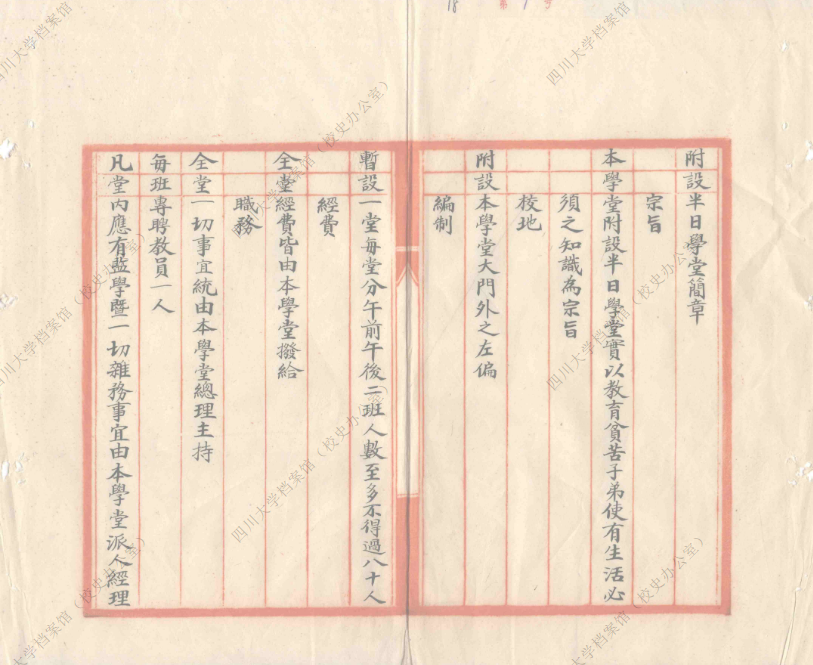 附設半日學堂簡章
宗旨
本學堂附設半日學堂實以教育貧苦子弟使有生活必
須之知識為宗旨
校地
附設本學堂大門外之左偏
編制
暫設一堂每堂分午前午後二班人數至多不得過八十人
經費
全堂經費皆由本學堂撥給
職務
全堂一切事宜統由本學堂總理主持
每班專聘教員一人
凡堂內應有監學暨一切雜務事宜由本學堂派人經理
四川大学档案馆（校史办公室）